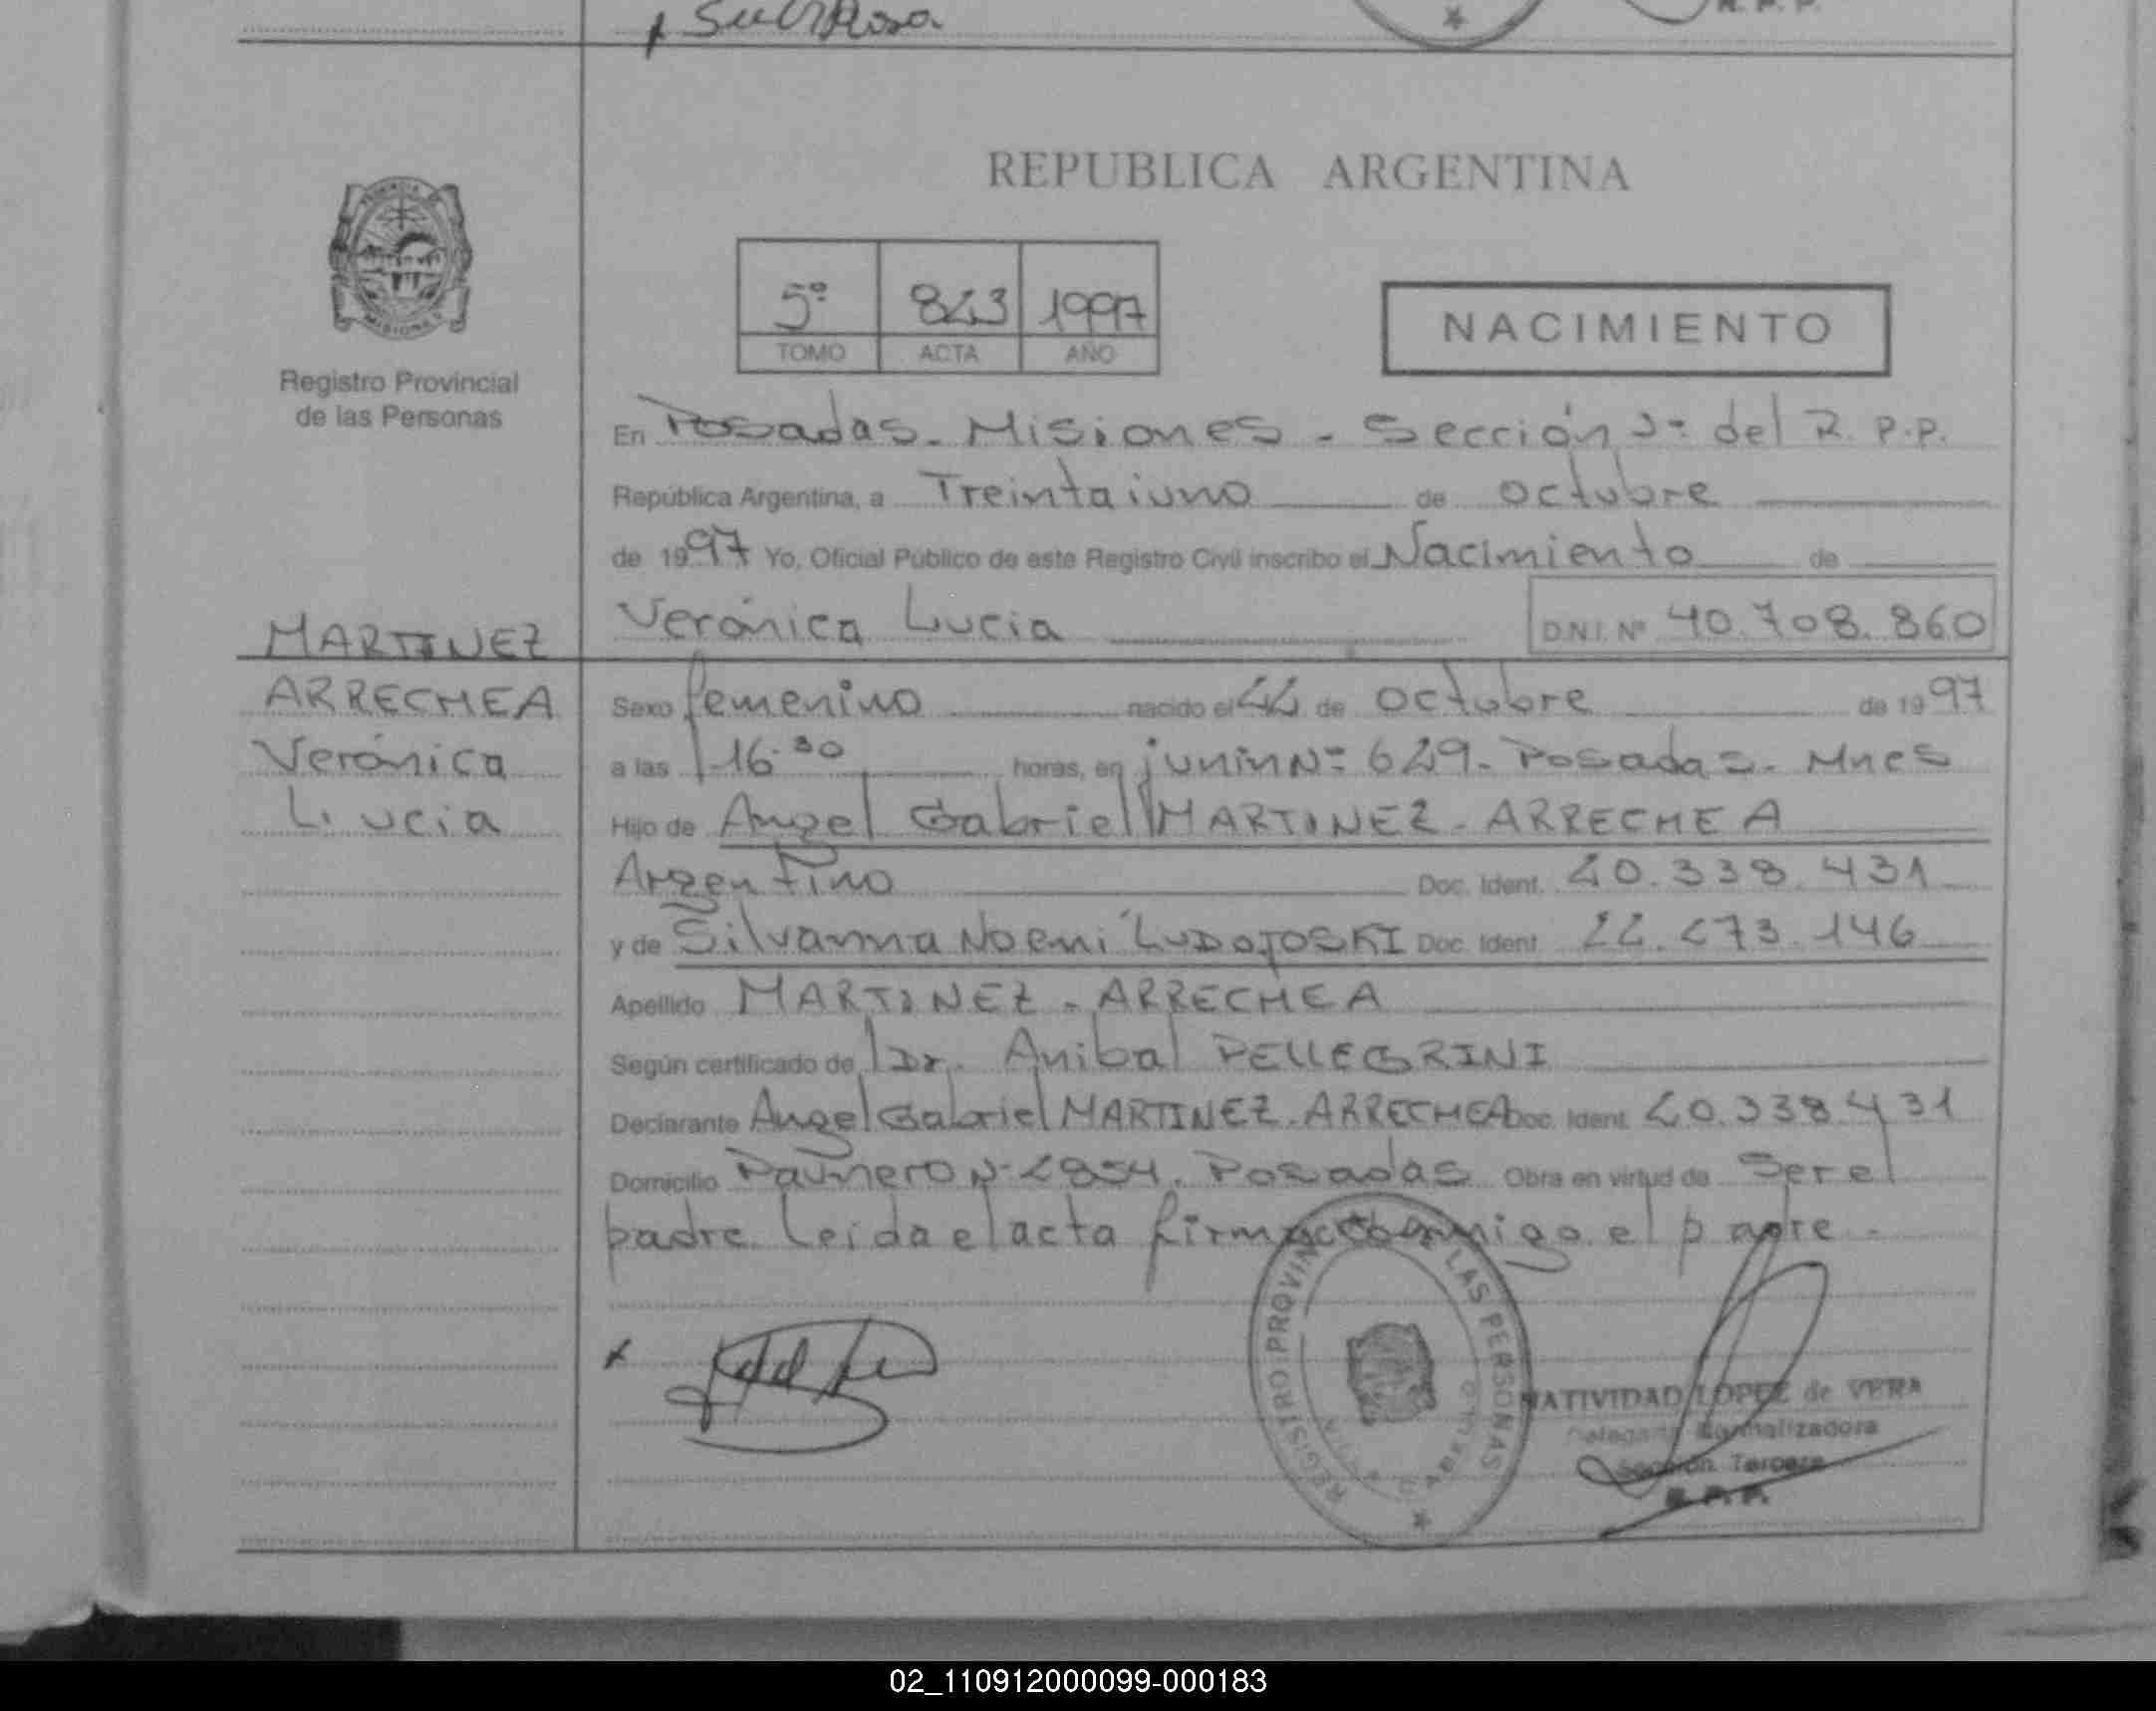 Sub Rosa
R. P. P.
REPUBLICA ARGENTINA
PROVINCIA
MISIONES
5º 823 1997
TOMO ACTA AÑO
NACIMIENTO
Registro Provincial
de las Personas
En Posadas - Misiones - Sección 3ª del R.P.P.
República Argentina, a Treintaiuno de octubre
de 1997 Yo, Oficial Público de este Registro Civil inscribo el Nacimiento de
Verónica Lucia D.N.I. Nº 40.708.860
MARTINEZ
ARRECHEA
Verónica
Lucia
Sexo femenino nacido el 22 de octubre de 1997
a las 16:30 horas, en junin Nº 629 - Posadas - Mnes
Hijo de Angel Gabriel MARTINEZ - ARRECHEA
Argentino Doc. Ident. 20.338.431
y de Silvanna Noemi LUDOJOSKI Doc. Ident. 22.273.146
Apellido MARTINEZ - ARRECHEA
Según certificado de Dr. Anibal PELLEGRINI
Declarante Angel Gabriel MARTINEZ - ARRECHEA Doc. Ident. 20.338.431
Domicilio Paunero Nº 2854. Posadas Obra en virtud de Ser el
padre. Leida el acta firma conmigo el padre -
x
REGISTRO PROVINCIAL DE LAS PERSONAS
NATIVIDAD LOPEZ de VERA
Delegada Normalizadora
Sección Tercera
R. P. P.
02_110912000099-000183